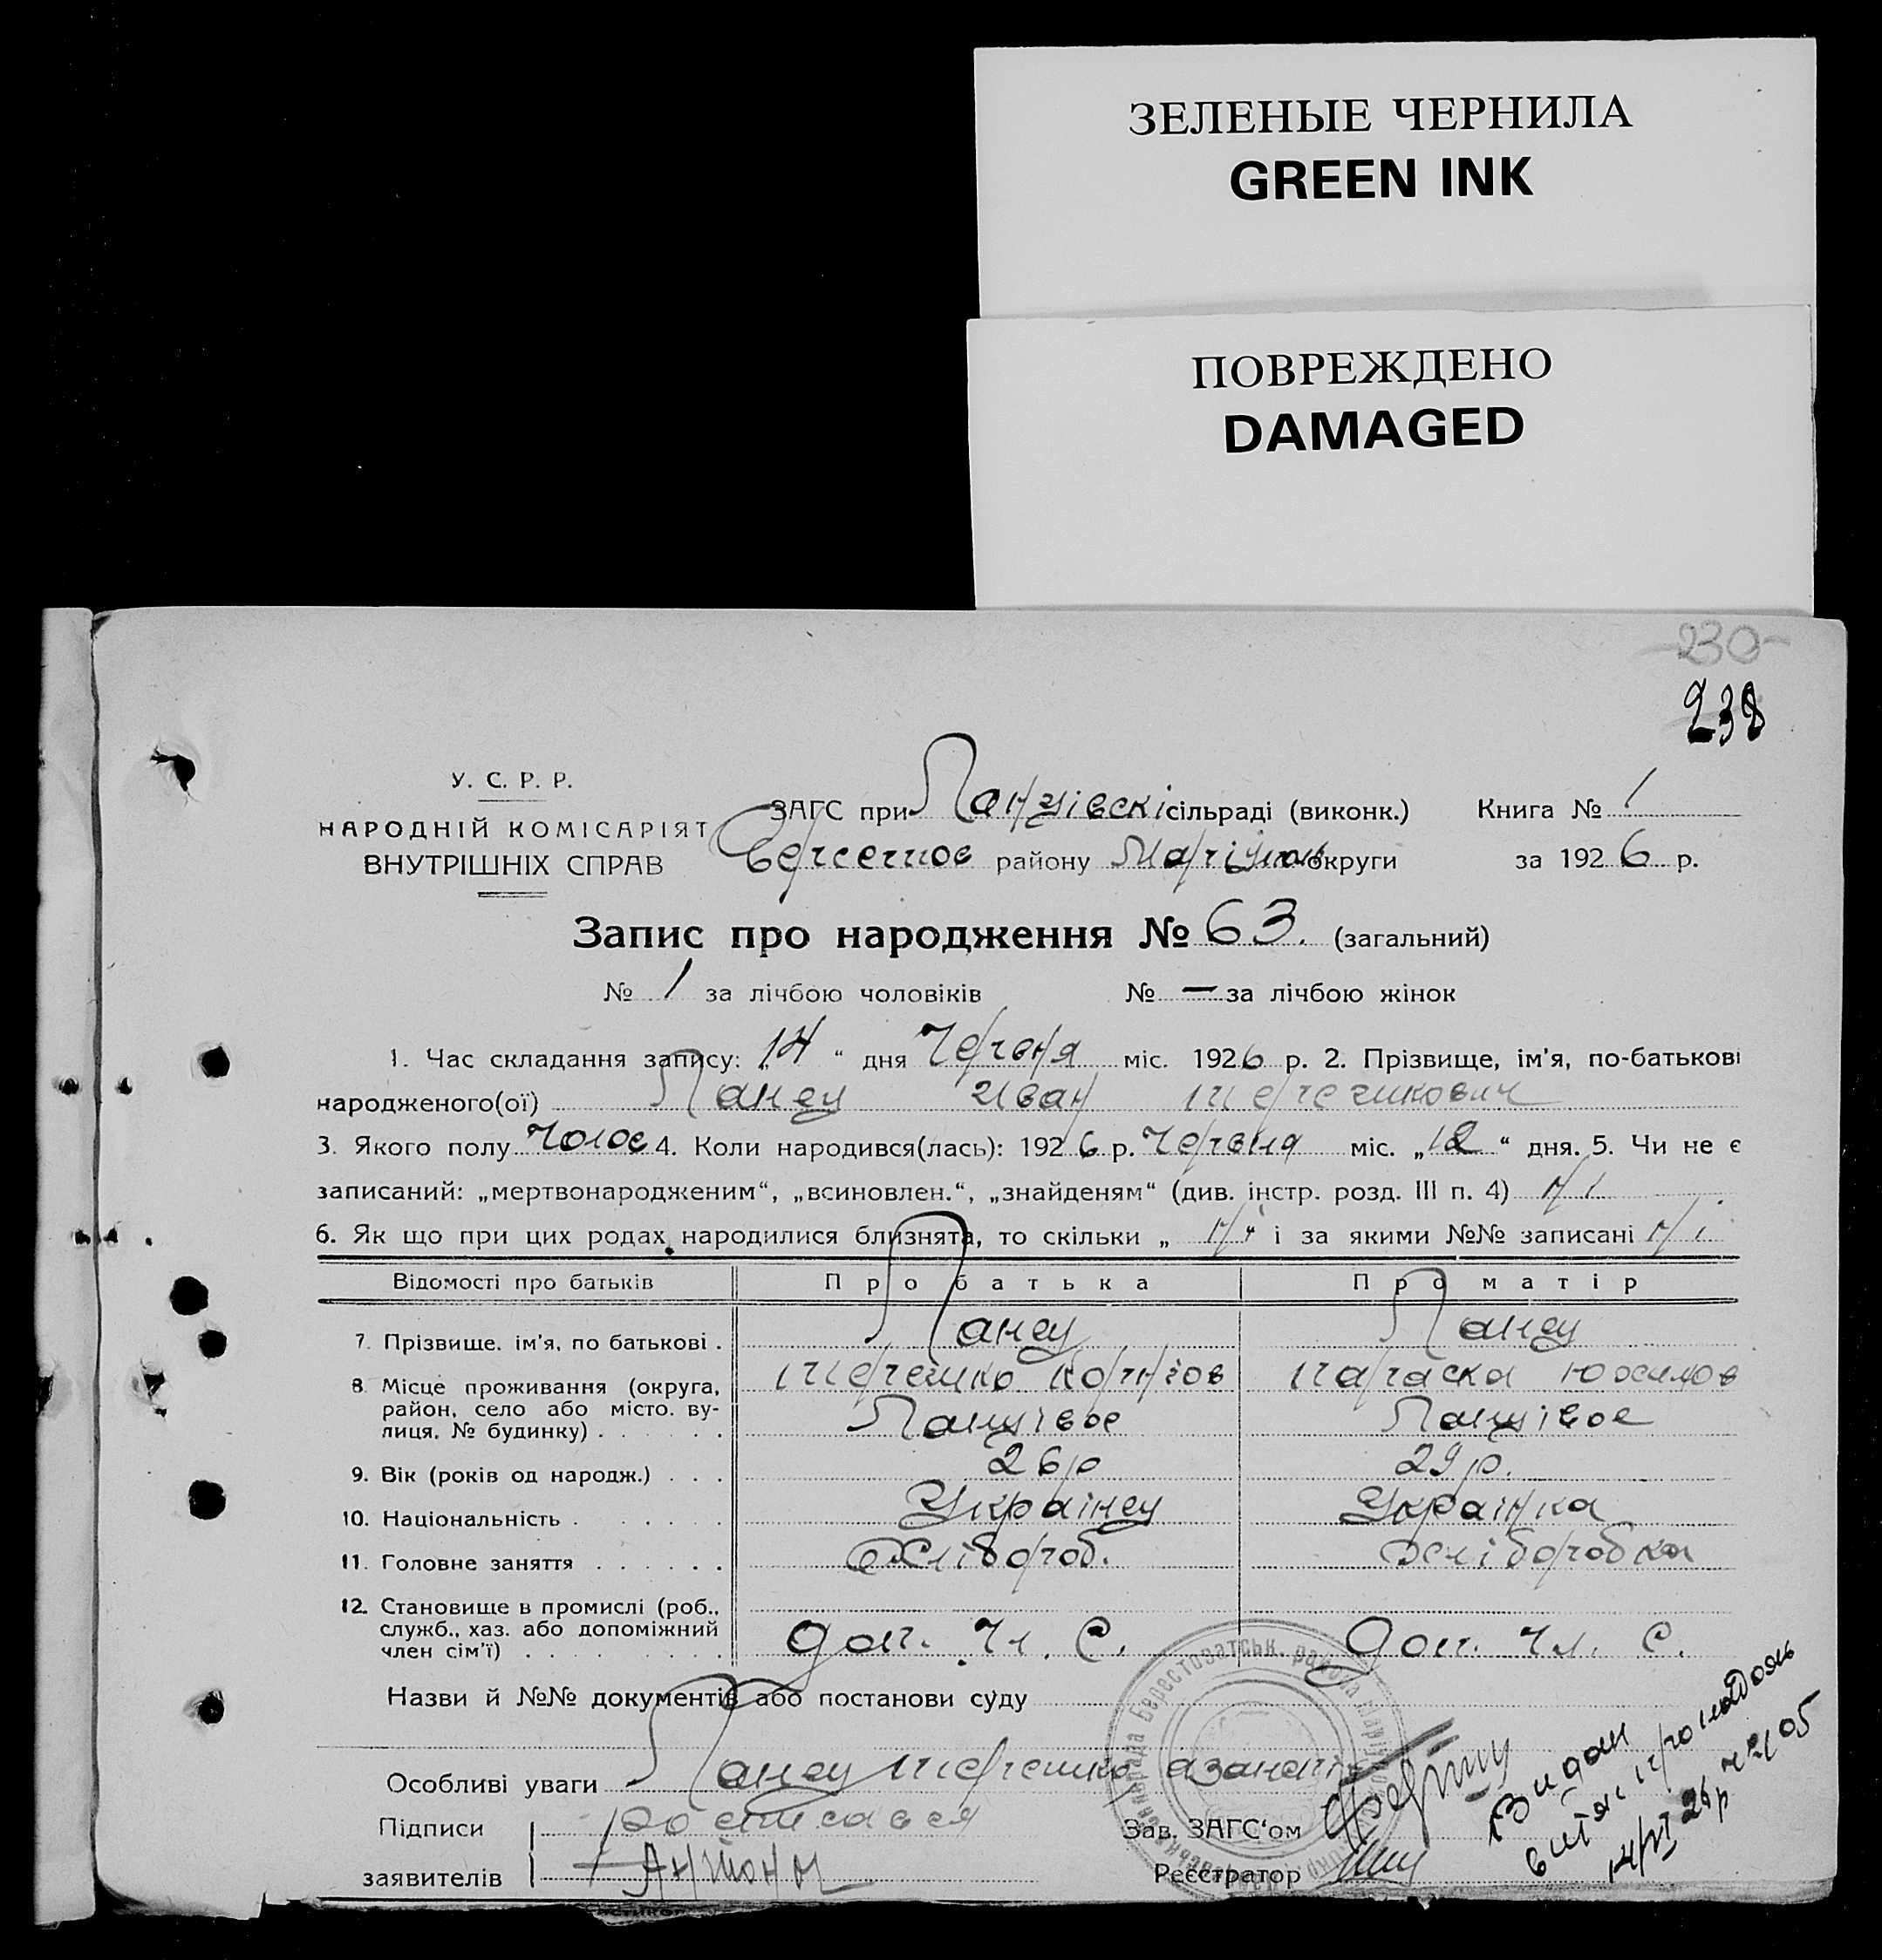 ЗЕЛЕНЫЕ ЧЕРНИЛА
GREEN INK
ПОВРЕЖДЕНО
DAMAGED
230
238
У. С. Р. Р.
НАРОДНІЙ КОМІСАРІЯТ
ВНУТРІШНІХ СПРАВ
ЗАГС при Ланцівскі сільраді (виконк.) Книга № 1
району Маріупол округи за 1926 р.
Запис про народження № 63. (загальний)
№ 1 за лічбою чоловіків № — за лічбою жінок
1. Час складання запису: „14“ дня Червня міс. 1926 р. 2. Прізвище, ім'я, по-батькові
народженого(ої) Ланец Иван
3. Якого полу Чолов 4. Коли народився(лась): 1926 р. Червня міс. „12“ дня. 5. Чи не є
записаний: „мертвонародженим“, „всиновлен.“, „знайденям“ (див. інстр. розд. III п. 4) Ні
6. Як що при цих родах народилися близнята, то скільки „Ні“ і за якими №№ записані Ні
Відомості про батьків Про батька Про матір
7. Прізвище, ім'я, по батькові . Ланец Ланец
8. Місце проживання (округа, район, село або місто, вулиця, № будинку) . . . . . .
9. Вік (років од народж.) . . . 26 р 29 р.
10. Національність . . . . . . Українец Українка
11. Головне заняття . . . . . . Хлібороб. Хліборобка
12. Становище в промислі (роб., служб., хаз. або допоміжний член сім'ї) . . . . . . . . . доп. чл. С. доп. чл. С.
Назви й №№ документів або постанови суду
Особливі уваги Ланец
Підписи росписався
заявителів
Зав. ЗАГС'ом
Реєстратор
Видан
витяг
14/VI 26 р